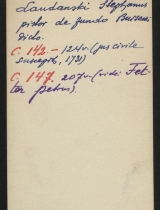 Laudanski Stephanus
pistor de fundo Bursen
dicto.
C. 142. - 124v. (jus civile
suscepit, 1731)
C. 147. 207v. (vide: Fet-
ter petrus).